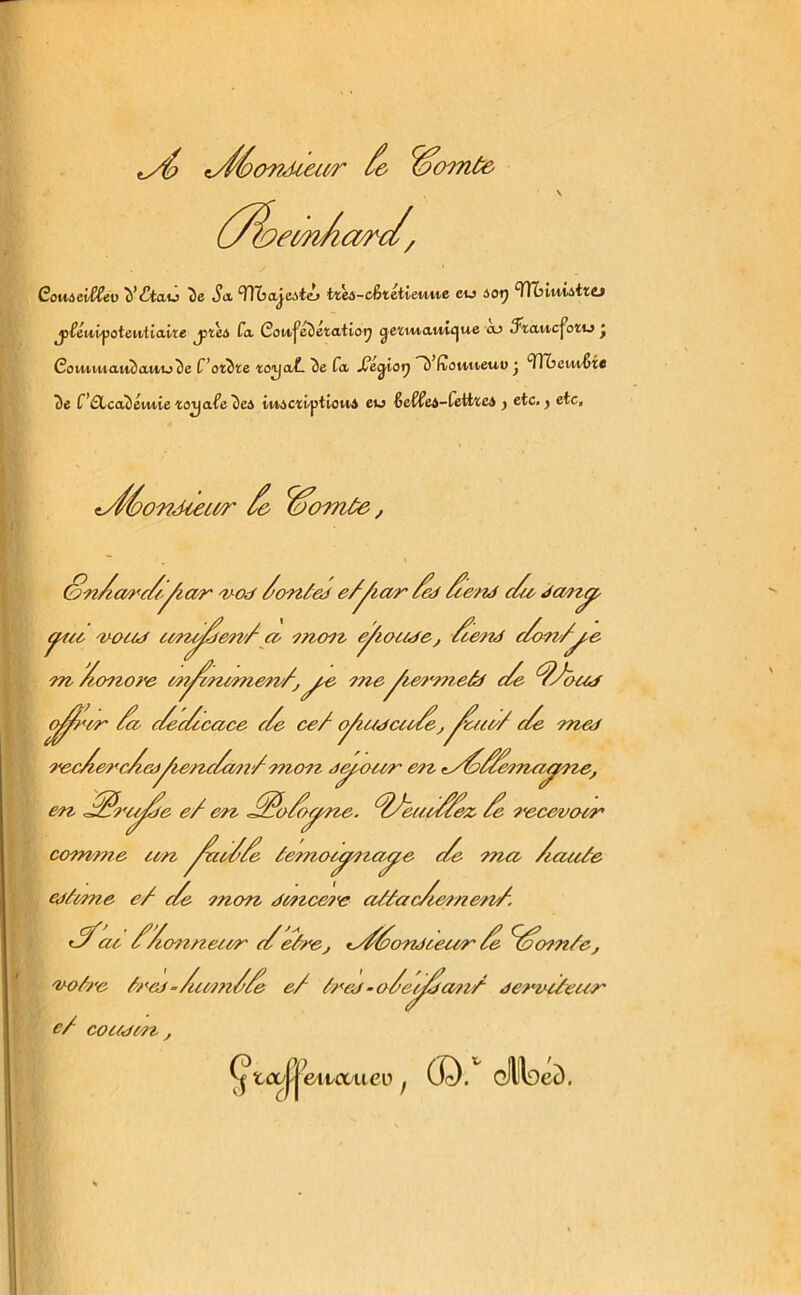 A Monsieur le Comte
Reinhard,
Conseiller d'État de Sa Majesté très-chrétienne et son Ministre
plénipotentiaire près la Conféderation germanique à Francfort;
Commandant de l'ordre royal de la Légion d'honneur; Membre
de l'Académie royale des inscriptions et belles-lettres, etc., etc.
Monsieur le Comte,
Enhardi par vos bontés et par les liens du sang
qui vous unissent à mon épouse, liens dont je
m'honore infiniment, je me permets de Vous
offrir la dédicace de cet opuscule, fruit de mes
recherches pendant mon séjour en Allemagne,
en Prusse et en Pologne. Veuillez le recevoir
comme un faible témoignage de ma haute
estime et de mon sincere attachement.
J'ai l'honneur d'être, Monsieur le Comte,
votre très-humble et très-obéissant serviteur
et cousin,
Graffenauer, D.r Méd.